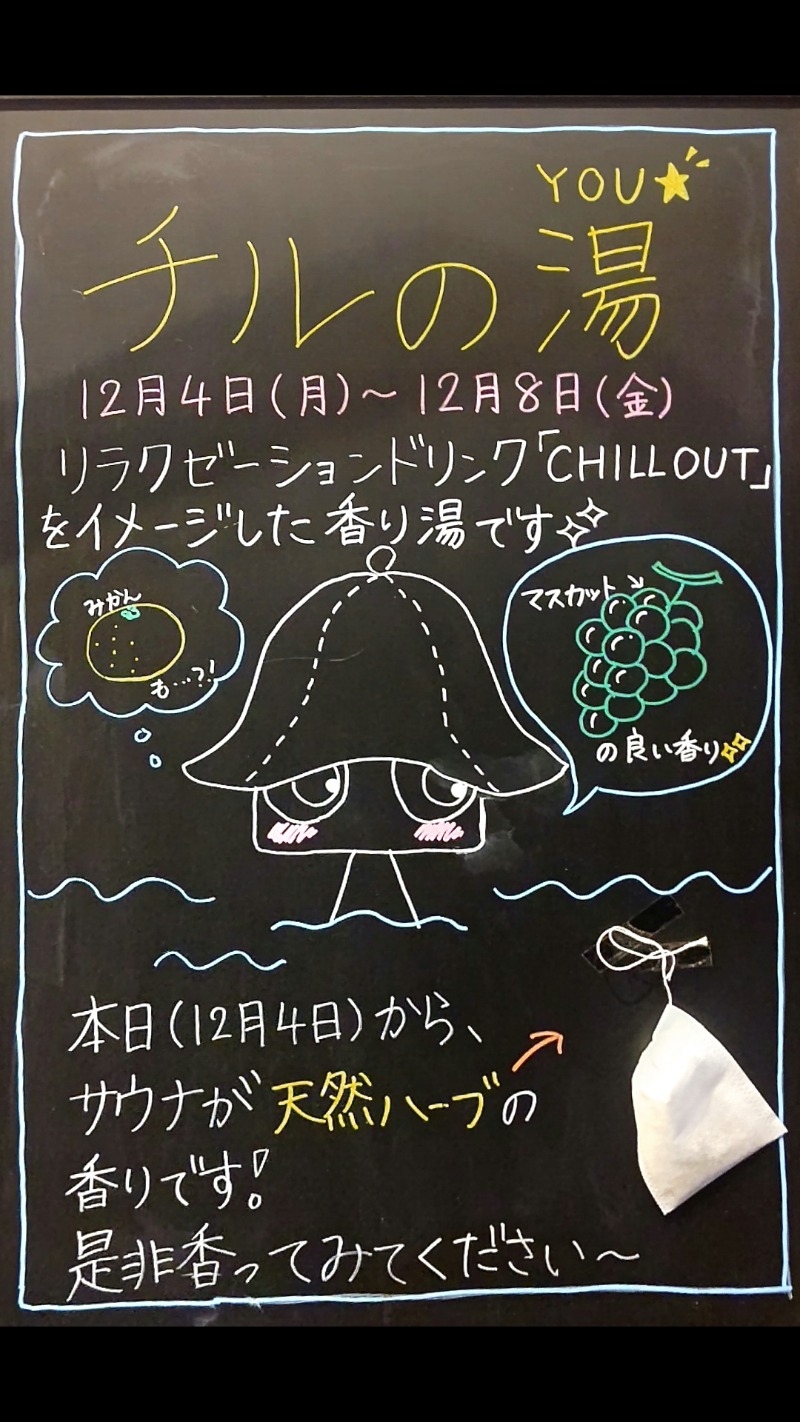 YOU
チルの湯
12月4日(月)〜12月8日(金)
リラクゼーションドリンク「CHILLOUT」
をイメージした香り湯です
みかん
も…?!
マスカット
の良い香り
本日(12月4日)から、
サウナが天然ハーブの
香りです!
是非香ってみてください〜